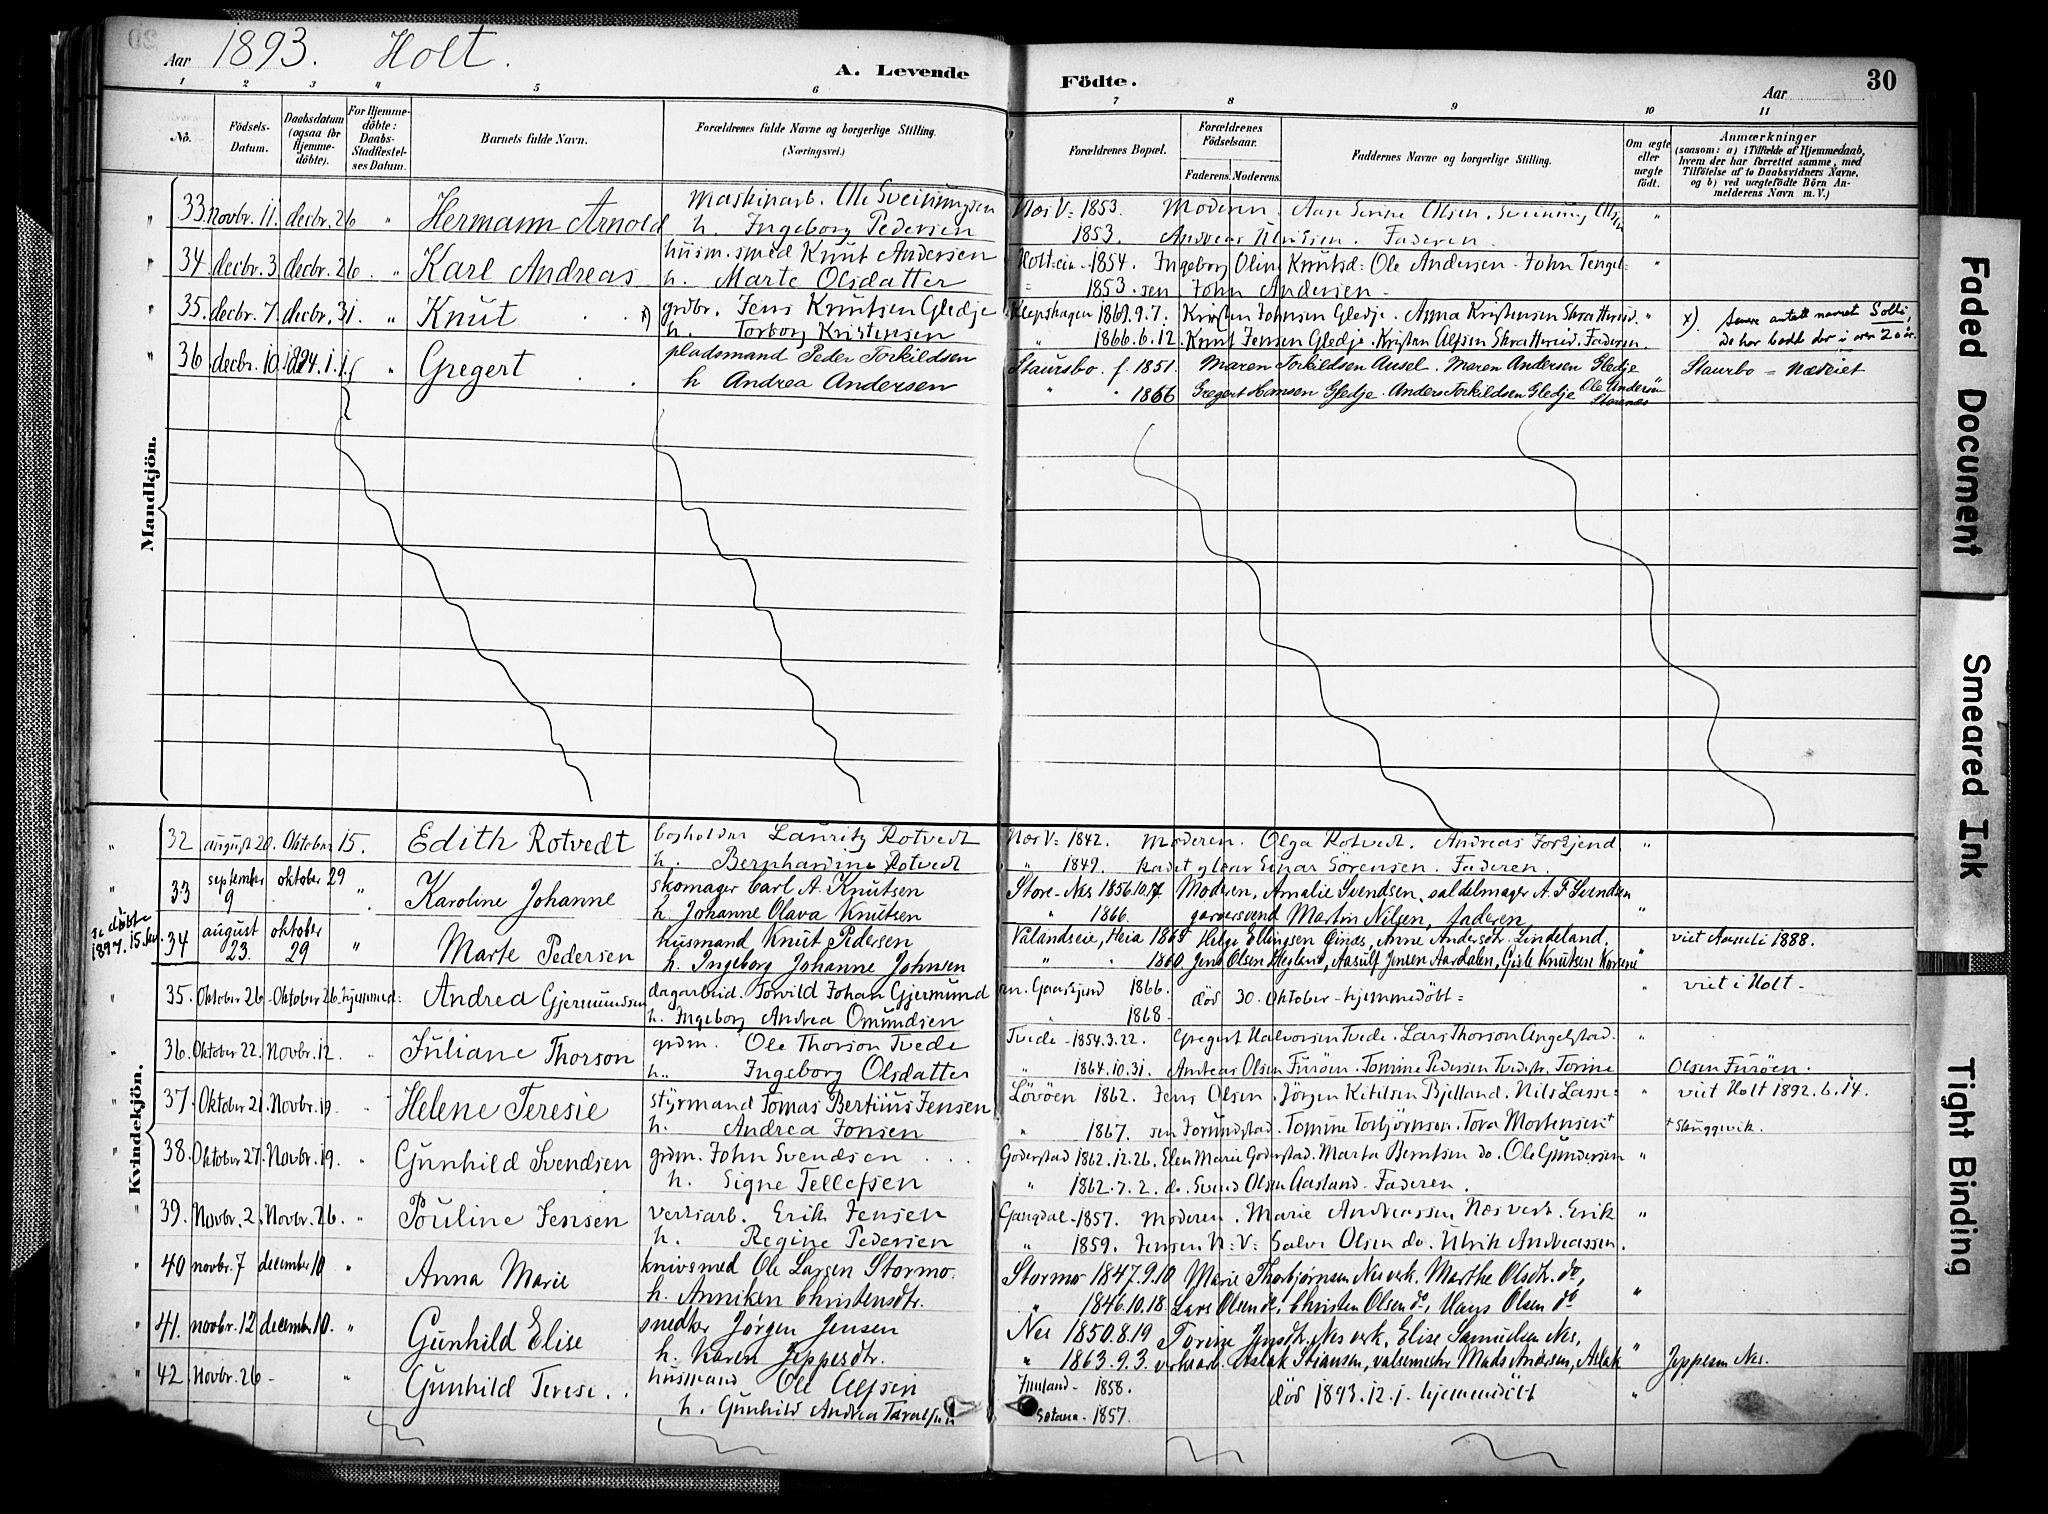 Aar 1893. Holt.
A. Levende Födte.
30
Aar
1 2 3 4 5 6 7 8 9 10 11
No.
Födsels-Datum.
Daabsdatum (ogsaa for Hjemme-döbte).
For Hjemme-döbte: Daabs-Stadfæstel-ses Datum.
Barnets fulde Navn.
Forældrenes fulde Navne og borgerlige Stilling. (Næringsvei.)
Forældrenes Bopæl.
Forældrenes Födselsaar.
Faderens. Moderens.
Faddernes Navne og borgerlige Stilling.
Om ægte eller uægte födt.
Anmærkninger (saasom: a) i Tilfælde af Hjemmedaab, hvem der har forrettet samme, med Tilföielse af to Daabsvidners Navne, og b) ved uægtefödte Börn Anmelderens Navn m. V.)
Mandkjön.
33. novbr. 11. decbr. 26 " Hermann Arnold Maskinarb. Ole Sveinungsen Næs V= 1853. Moderen. Aase Olsen. Sveinung Olsen "
h. Ingeborg Pedersen 1853. Andreas Ulriksen. Faderen.
34 decbr. 3 decbr. 26. " Karl Andreas husm. smed Knut Andersen Holt-eie 1854. Ingeborg Oline Knutsd= Ole Andersen - John Tengel= "
h. Marte Olsdatter " 1853. sen John Andersen -
35. decbr. 7. decbr. 31. " Knut x) grdbr. Jens Knutsen Gledje Klepshagen 1869.9.7. Kristen Johnsen Gledje. Anna Kristensen Skratthereid. " x). Senere antatt navnet Solli,
h. Torborg Kristensen " 1866.6.12. Knut Jensen Gledje. Kristen Alfsen Skratthereid. Faderen. De har bodt der i over 20 år.
36 decbr. 10. 1894.1.1. " Gregert pladsmand Peder Torkildsen Staursbo. f. 1851. Maren Torkildsen Ausel. Maren Andersen Gledje Staurbo = Næseiet
h Andrea Andersen " " 1866 Gregert Hansen Gledje. Anders Torkildsen Gledje Ole Andersen
Storenes
Kvindekjön.
32 august 20. Oktober 15. Edith Rotvedt Lauritz Rotvedt Næs V= 1842. Moderen. Olga Rotvedt. Andreas "
h. Bernhardine Rotvedt " 1849. Einar Sörensen. Faderen.
33 september 9 oktober 29 " Karoline Johanne skomager Carl A. Knutsen Store-Nes 1856.10.7 Moderen, Amalie Svendsen, saldelmager A. F. Svendsen
h. Johanne Olava Knutsen " 1866. garversvend Martin Nilsen, faderen "
se döbte 1897. 15.
34 august 23. oktober 29 " Marte Pedersen husmand Knut Pedersen Valandseie, Heia 1865 Helge Ellingsen Anne Andersdtr. Lindeland. viet Aaseli 1888.
h. Ingeborg Johanne Johnsen " " 1860 Jens Olsen Hegland, Aasulf Jensen Aardalen, Gisle Knutsen "
35. Oktober 26 - Oktober 26 hjemmed: Andrea Gjermundsen dagarbeid. Torvild Johan Gjermund 1866. död 30. Oktober - hjemmedöbt = " viet i Holt -
h. Ingeborg Andrea Omundsen " 1868 -
36. Oktober 22. Novbr. 12. " Juliane Thorson grdm. Ole Thorson Tvede Tvede - 1854.3.22. Gregert Halvorsen Tvede. Lars Thorson Angelstad. "
h.. Ingeborg Olsdatter " 1864.10.31. Andreas Olsen Furöen. Tomine Pedersen Tvedestr. Torine Olsen Furöen.
37. Oktober 21. Novbr. 19. " Helene Teresie styrmand Tomas Bertinus Jensen Lövöen 1862. Jens Olsen. Jörgen Ketilsen Bjelland. Nils Lasse= " viet Holt 1892.6.14.
h. Andrea Jonsen " 1867. sen Torundstad. Tomine Torbjörnsen. Tora Mortensen+ + Skuggevik.
38. Oktober 27. Novbr. 19. " Gunhild Svendsen grdm. John Svendsen Goderstad 1862.12.26. Elen Marie Goderstad. Marta Berntsen do. Ole Gundersen "
h. Signe Tellefsen " 1862.7.2. do. Svend Olsen Aasland - Faderen.
39. Novbr. 2. Novbr. 26. " Pouline Jensen verksarb. Erik Jensen Gangdal - 1857. Moderen. Marie Andreassen Næs verk. Erik "
h. Regine Pedersen " 1859. Jensen N=V= Salve Olsen do. Ulrik Andreassen.
40 novbr. 7 december 10 " Anna Marie knivsmed Ole Larsen Stormo. Stormo 1847.9.10 Marie Thorbjørnsen Nesverk. Marthe Olsdtr. do,
h. Anniken Christensdtr. " 1846.10.18. Lars Olsen do, Christen Olsen do, Hans Olsen do "
41. novbr. 12 december 10. " Gunhild Elise snedker Jørgen Jensen Nes 1850.8.19 Torine Jensdtr. Nes verk. Elise Samuelsen Nes,
h. Karen Jeppesdtr. " 1863.9.3. verksarb. Aslak Stiansen, valsemestr Mads Andersen, Aslak " Jeppesen Nes.
42. Novbr. 26 - " Gunhild Terese. husmand Ole Alfsen 1858. död 1893.12.1. hjemmedöbt "
h. Gunhild Andrea Taraldsen 1857.
Faded Document
Smeared Ink
Tight Binding